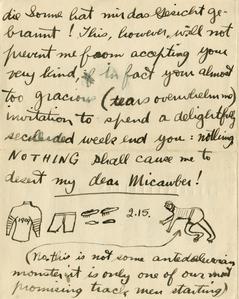 die Sonne hat mir das Gesicht ge-
brannt! This, however, will not
prevent me from accepting your
very kind, in fact your almost
too gracious (tears overwhelm me)
invitation to spend a delightfully
secluded week end you: nothing
NOTHING shall cause me to
desert my dear Micawber!
2.15.
(No, this is not some antedeluvian
monster, it is only one of our most
promising track men starting)